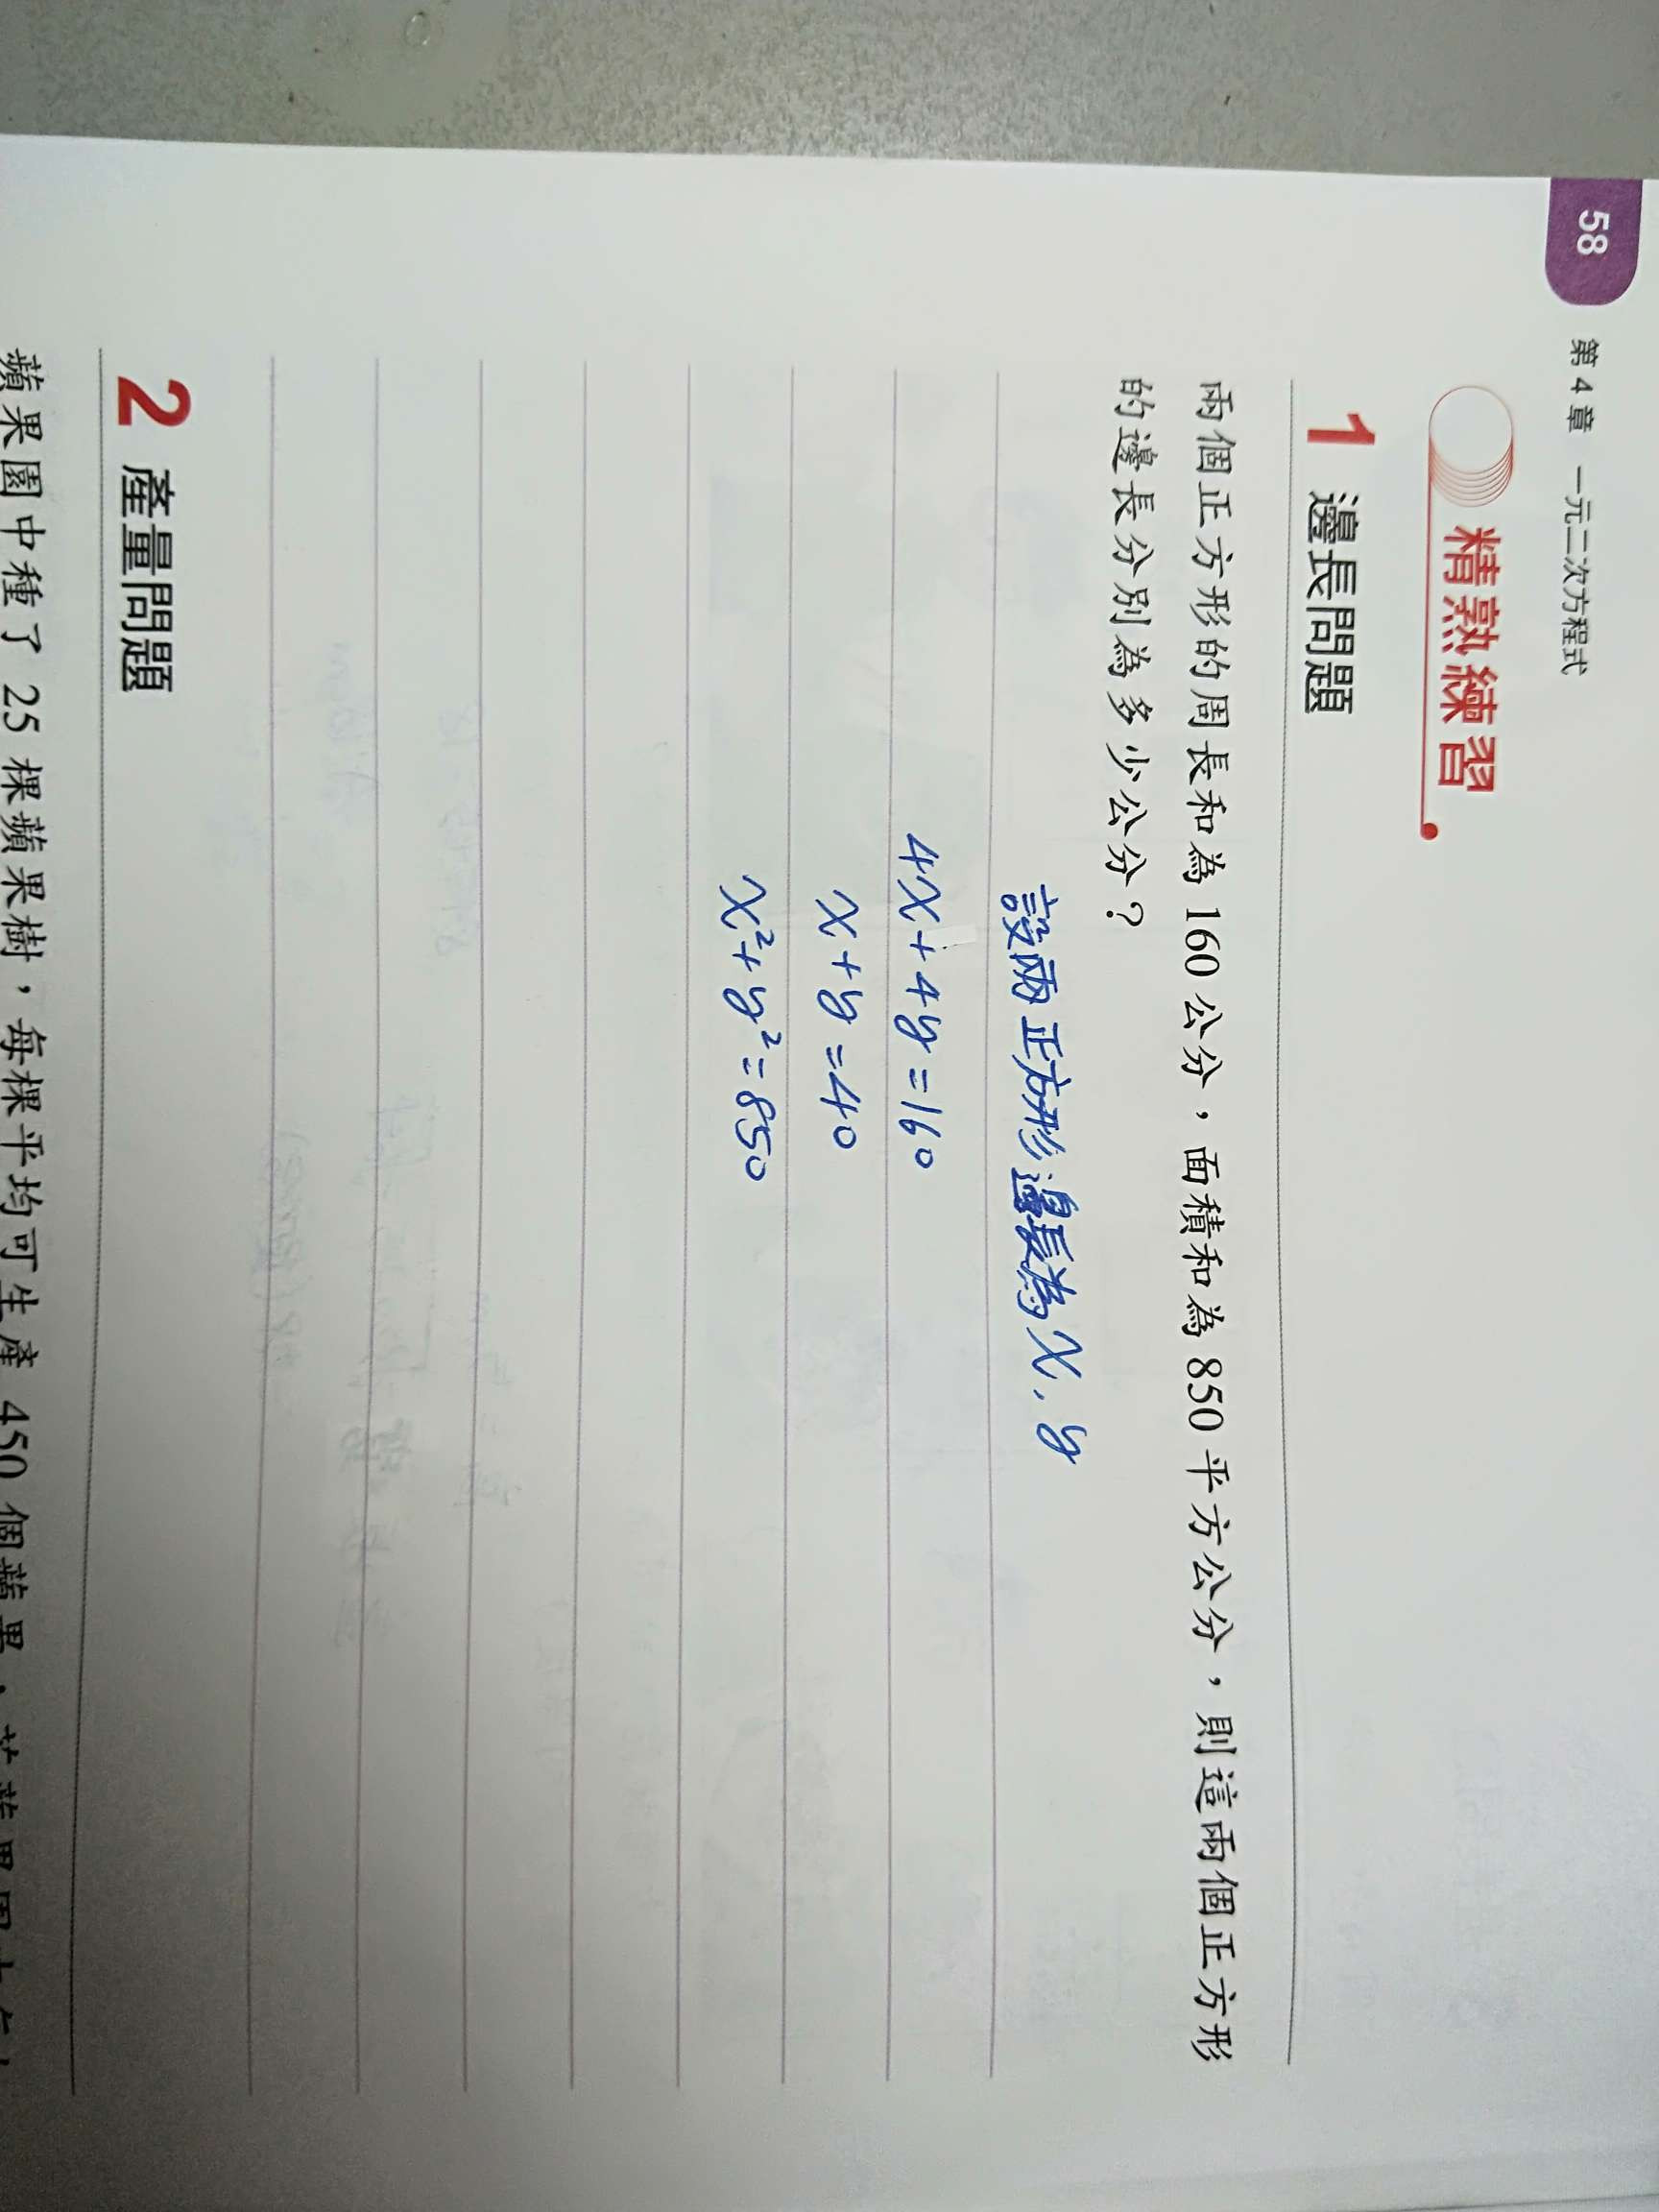 58
第 4 章 一元二次方程式
精熟練習
1 邊長問題
兩個正方形的周長和為 160 公分，面積和為 850 平方公分，則這兩個正方形
的邊長分別為多少公分？
設兩正方形邊長為x、y
4x+4y=160
x+y=40
x²+y²=850
2 產量問題
蘋果園中種了 25 棵蘋果樹，每棵平均可生產 450 個蘋果，若蘋果園中